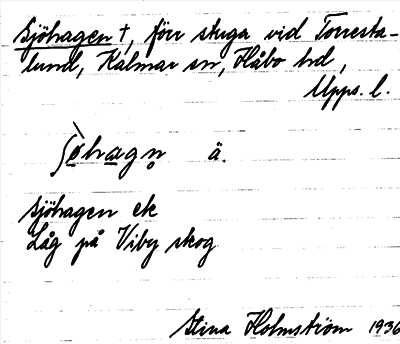 Sjöhagen †, förr stuga vid Torresta-
lund, Kalmar sn, Håbo hd,
Upps. l.
ʃöhagn̥ ä.
Sjöhagen ek
Låg på Viby skog
Stina Holmström 1936